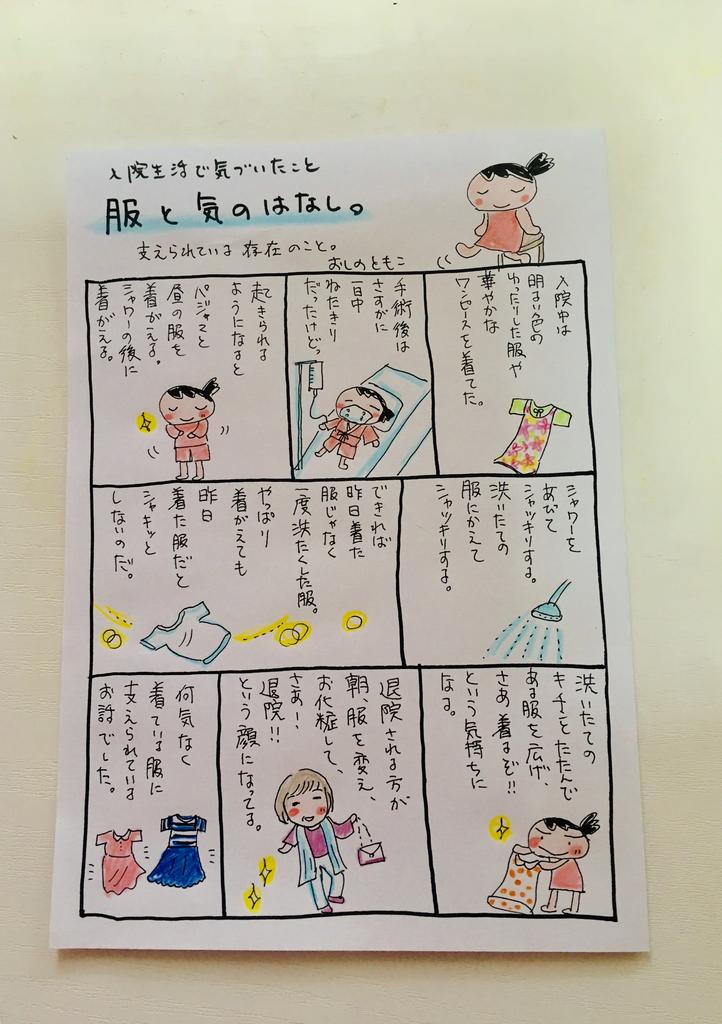 入院生活で気づいたこと
服と気のはなし。
支えられている存在のこと。
おしのともこ
入院中は
明るい色の
ゆったりした服や
華やかな
ワンピースを着てた。
手術後は
さすがに
一日中
ねたきり
だったけどっ
起きられる
ようになると
パジャマと
昼の服を
着がえる。
シャワーの後に
着がえる。
シャワーを
あびて
シャッキリする。
洗いたての
服にかえて
シャッキリする。
できれば
昨日着た
服じゃなく
一度洗たくした服。
やっぱり
着がえても
昨日
着た服だと
シャキッと
しないのだ。
洗いたての
キチッとたたんで
ある服を広げ、
さあ着るぞ!!
という気持ちに
なる。
退院される方が
朝、服を変え、
お化粧して、
さあー!
退院!!
という顔になってる。
何気なく
着ている服に
支えられている
お話でした。